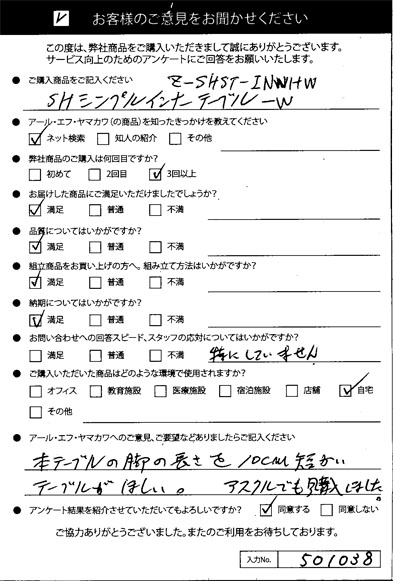 お客様のご意見をお聞かせください
この度は、弊社商品をご購入いただきまして誠にありがとうございます。
サービス向上のためのアンケートにご回答をお願いいたします。
● ご購入商品をご記入ください Z-SHST-INWHW
SHシンプルインナーテーブルーW
● アール・エフ・ヤマカワ(の商品)を知ったきっかけを教えてください
☑ ネット検索 □ 知人の紹介 □ その他
● 弊社商品のご購入は何回目ですか?
□ 初めて □ 2回目 ☑ 3回以上
● お届けした商品にご満足いただけましたでしょうか?
☑ 満足 □ 普通 □ 不満
● 品質についてはいかがですか?
☑ 満足 □ 普通 □ 不満
● 組立商品をお買い上げの方へ。組み立て方法はいかがですか?
☑ 満足 □ 普通 □ 不満
● 納期についてはいかがですか?
☑ 満足 □ 普通 □ 不満
● お問い合わせへの回答スピード、スタッフの応対についてはいかがですか?
□ 満足 □ 普通 □ 不満 特にしていません
● ご購入いただいた商品はどのような環境で使用されますか?
□ オフィス □ 教育施設 □ 医療施設 □ 宿泊施設 □ 店舗 ☑ 自宅
□ その他
● アール・エフ・ヤマカワへのご意見、ご要望などありましたらご記入ください
本テーブルの脚の長さを10cm短かい
テーブルがほしい。 アスクルでも購入しました。
● アンケート結果を紹介させていただいてもよろしいですか? ☑ 同意する □ 同意しない
ご協力ありがとうございました。またのご利用をお待ちしております。
入力No. 501038